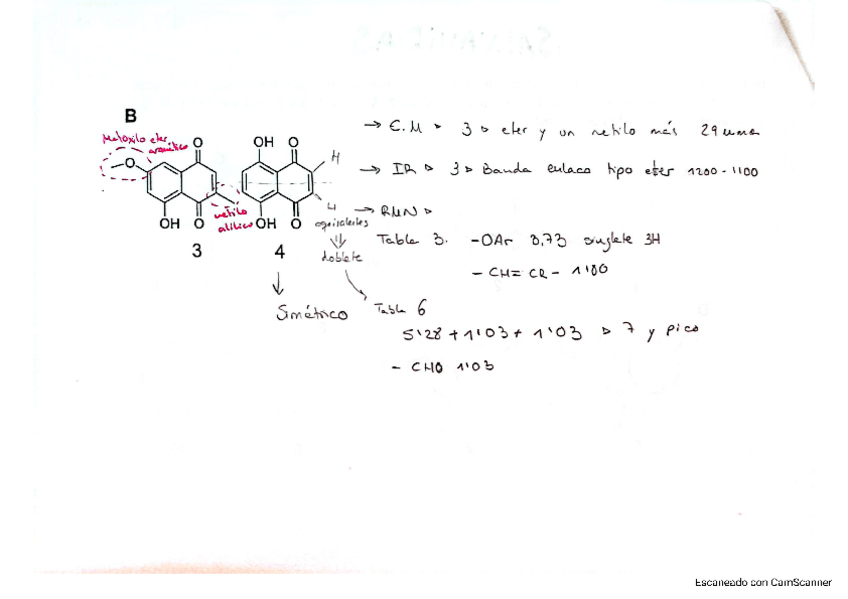 B
Metoxilo eter
aromático
O
O
OH
O
metilo
alílico
3
OH
O
H
H
OH
O
equivalentes
doblete
4
Simétrico
→ E.M ▹ 3 ▹ eter y un metilo más 29 uma
→ IR ▹ 3 ▹ Banda enlace tipo eter 1200-1100
→ RMN ▹
Tabla 3. -OAr 3,73 singlete 3H
- CH= CR - 1'80
Tabla 6
5'28 + 1'03 + 1'03 ▹ 7 y pico
- CHO 1'03
Escaneado con CamScanner